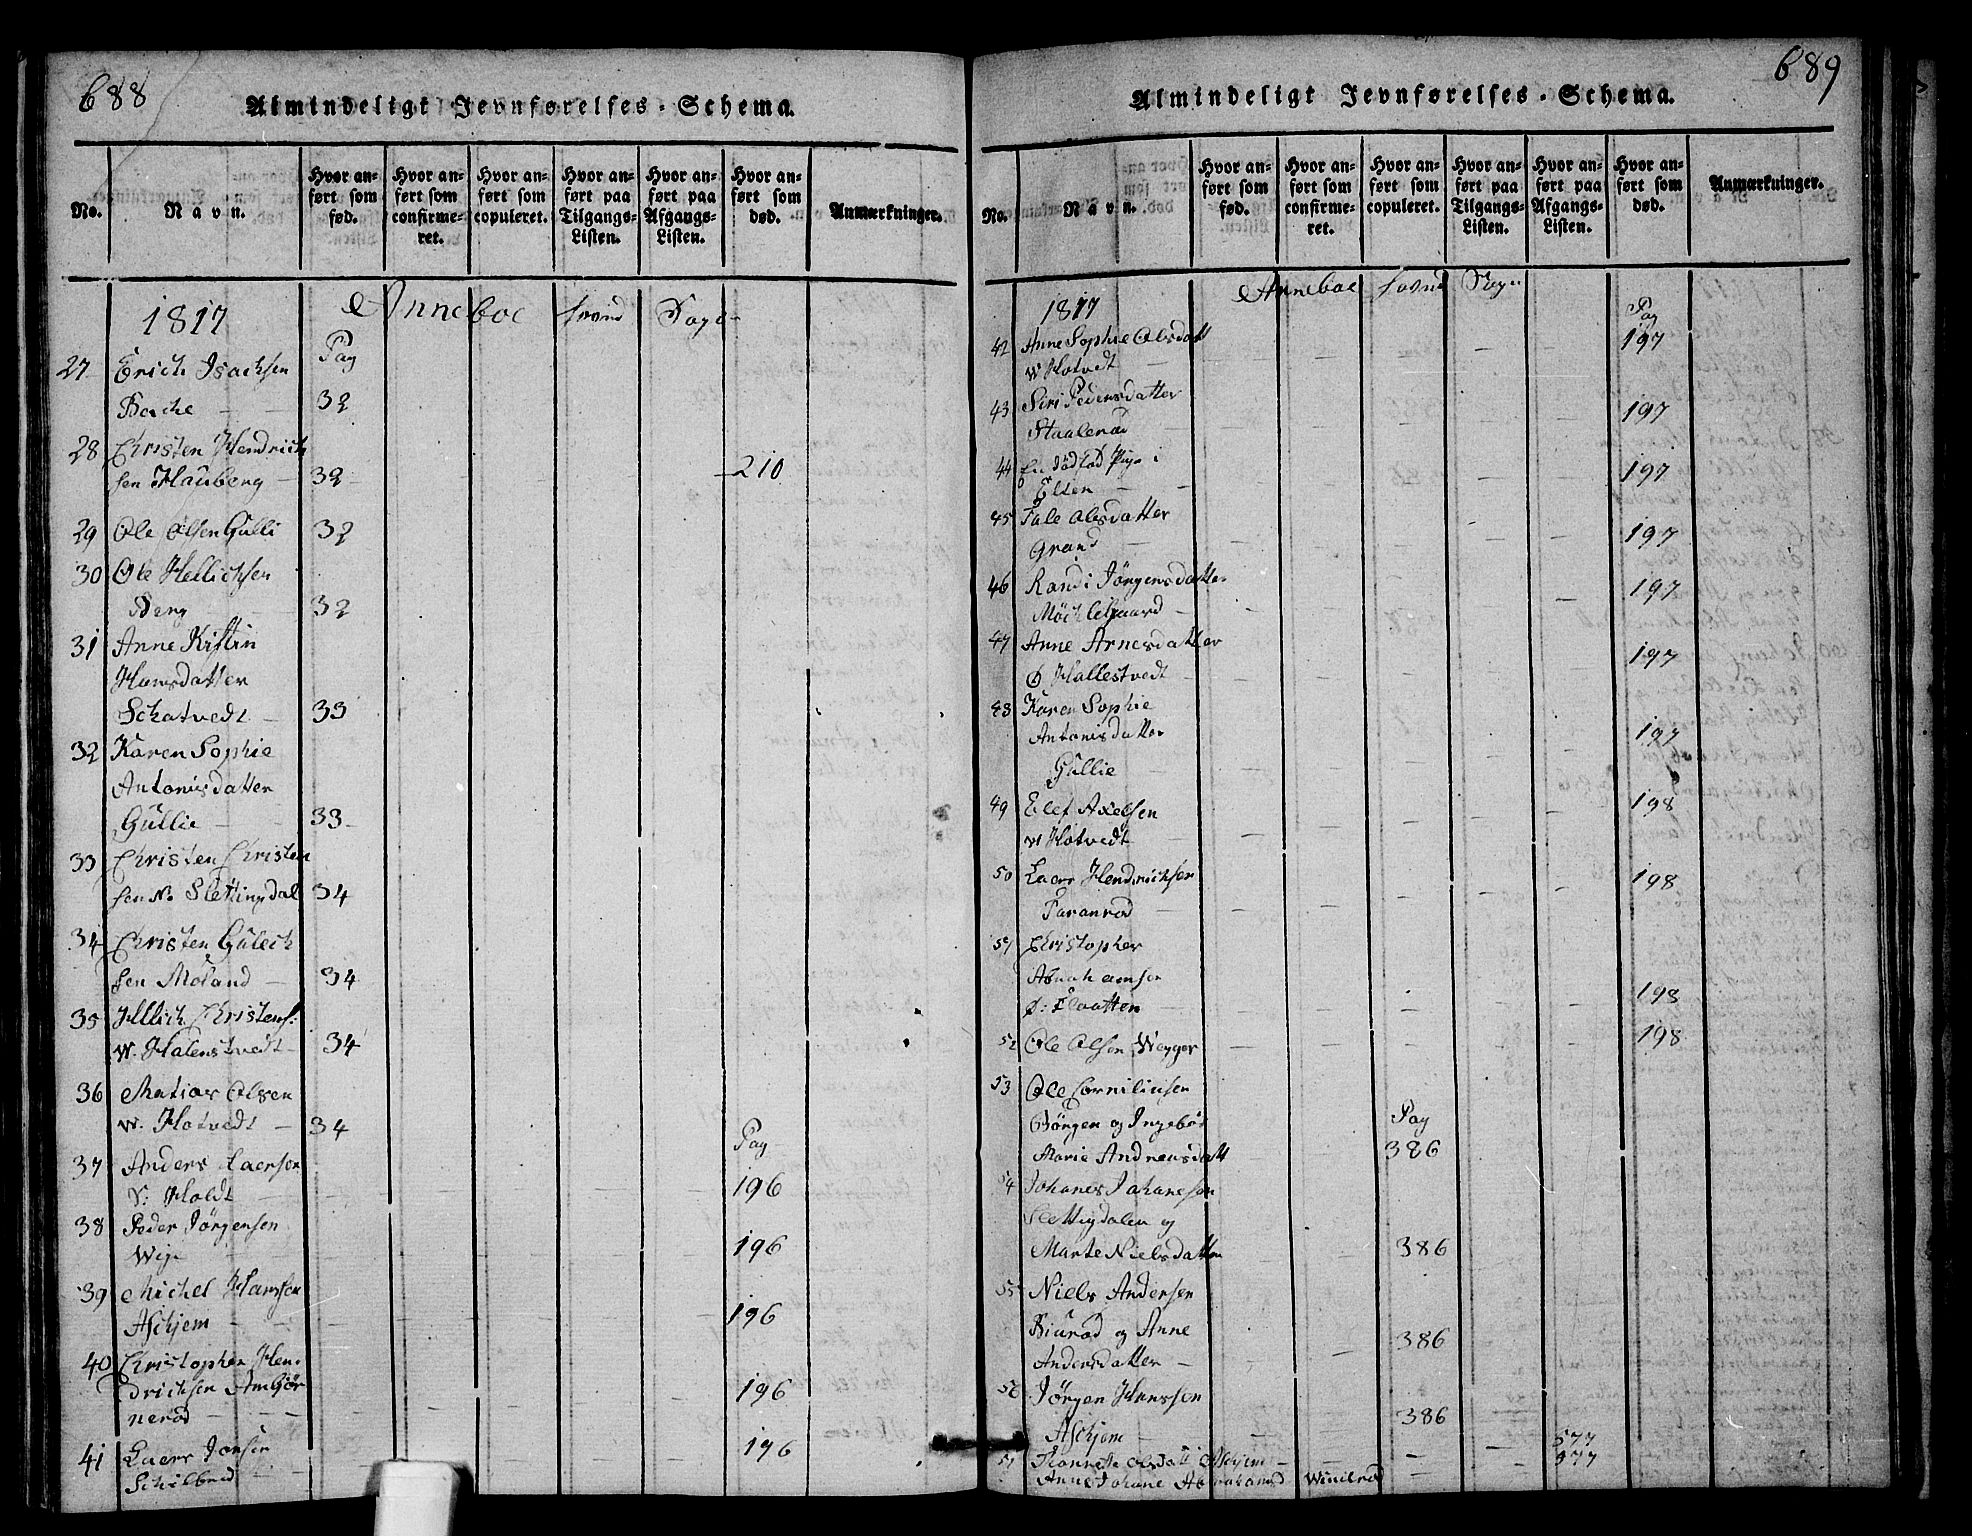 688
Almindeligt Jevnførelses-Schema.
No.
Navn.
Hvor anført som fød.
Hvor anført som confirmeret.
Hvor anført som copuleret.
Hvor anført paa Tilgangs-Listen.
Hvor anført paa Afgangs-Listen.
Hvor anført som død.
Anmærkninger.
1817 Anneboe Sogn
Pag
27 Erich Isachsen
Bache — 32
28 Christen Hendrich
sen Hauberg — 32 210
29 Ole Olsen Gulli 32
30 Ole Hellichsen
Berg 32
31 Anne Kistin
Hansdatter
Schatvedt — 33
32 Karen Sophie
Antonisdatter
Gullie — 33
33 Christen Christen
sen N. Slettingdal 34
34 Christen Gulech
sen Moland — 34
35 Hellich Christens:
W. Halenstvedt 34
36 Matias Olsen
W. Hotvedt — 34
Pag
37 Anders Laersen
Holdt — 196
38 Peder Jørgensen
196
39 Michel Hanssen
Aschjem — 196
40 Christopher Hen
drichsen
nerød — 196
41 Laers Jansen 196
689
Almindeligt Jevnførelses-Schema.
No.
Navn.
Hvor anført som fød.
Hvor anført som confirmeret.
Hvor anført som copuleret.
Hvor anført paa Tilgangs-Listen.
Hvor anført paa Afgangs-Listen.
Hvor anført som død.
Anmærkninger.
1817 Anneboe
Pag
42 Anne Sophie Olsdatt 197
W Hotvedt —
43 Siri Pedersdatter 197
44 En dødfød Pige i 197
45 Tale Olsdatter
197
46 Randi Jørgensdatter 197
Møchlegaard —
47 Anne Arnesdatter 197
Ø Hallestvedt
48 Karen Sophie
Antonisdatter 197
Gullie —
49 Elef Axelsen 198
W Hotvedt
50 Laers Hendrichsen 198
51 Christopher
Abrahamsen
198
52 Ole Olsen 198
53 Ole Corniliusen
Pag
Marie Andreasdatt 386
54 Johanes Johanesen
Slettigdalen og
Marte Nielsdatter 386
55 Niels Andersen
og Anne 386
Andersdatter —
56 Jørgen Hanssen
Aschjem — 386
577
Aschjem 577
Anne Johane